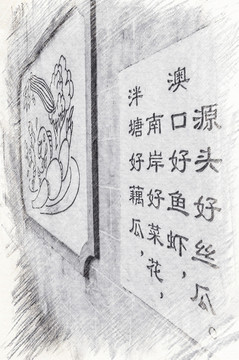 泮塘好藕瓜，
南岸好菜花，
澳口好鱼虾，
源头好丝瓜。